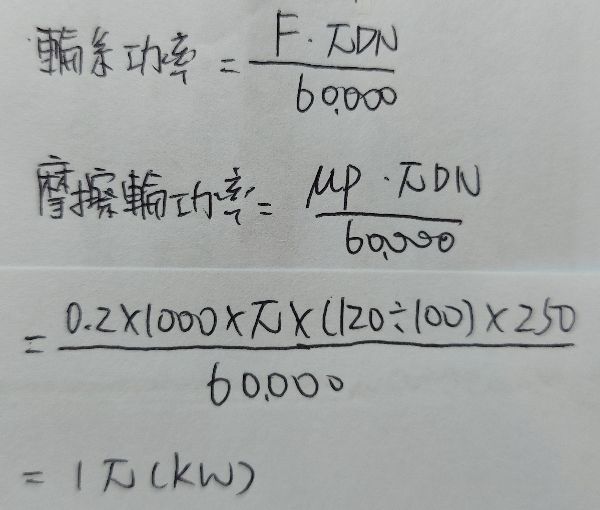 輪系功率 = F·πDN / 60,000
摩擦輪功率 = μP·πDN / 60,000
= 0.2×1000×π×(120÷100)×250 / 60,000
= 1π(kW)